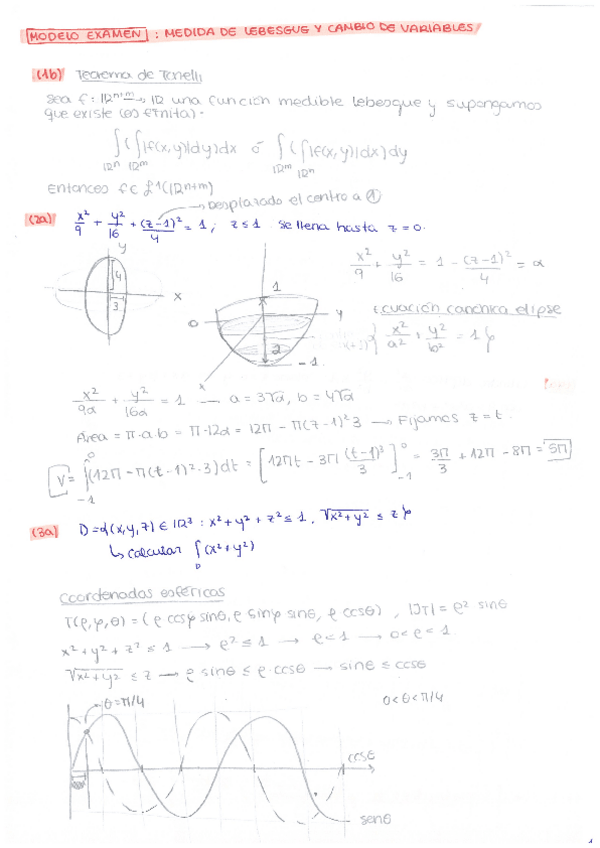 MODELO EXAMEN : MEDIDA DE LEBESGUE Y CAMBIO DE VARIABLES
(1b) Teorema de Tonelli
Sea f: ℝⁿ⁺ᵐ → ℝ una función medible Lebesgue y supongamos
que existe (es finita).
∫ℝⁿ (∫ℝᵐ |f(x,y)|dy)dx ó ∫ℝᵐ (∫ℝⁿ |f(x,y)|dx)dy
Entonces f ∈ L¹(ℝⁿ⁺ᵐ)
→ Desplazado el centro a 1
(2a) x²/9 + y²/16 + (z-1)²/4 = 1; z ≤ 1 se llena hasta z = 0.
x²/9 + y²/16 = 1 - (z-1)²/4 = α
y
4
3
x
1
0
y
2
-1
x
Ecuación canónica elipse
{ x²/a² + y²/b² = 1 }
x²/9α + y²/16α = 1 → a = 3√α, b = 4√α
Área = π·a·b = π·12α = 12π - π(z-1)²3 → Fijamos z = t.
V = ∫₋₁⁰ (12π - π(t-1)²·3)dt = [12πt - 3π (t-1)³/3]₋₁⁰ = 3π/3 + 12π - 8π = 5π
(3a) D = {(x,y,z) ∈ ℝ³ : x²+y²+z² ≤ 1, √x²+y² ≤ z}
↳ calcular ∫D (x²+y²)
Coordenadas esféricas
T(ρ,φ,θ) = (ρ cosφ sinθ, ρ sinφ sinθ, ρ cosθ), |JT| = ρ² sinθ
x²+y²+z² ≤ 1 → ρ² ≤ 1 → ρ < 1 → 0 < ρ < 1
√x²+y² ≤ z → ρ sinθ ≤ ρ·cosθ → sinθ ≤ cosθ
θ = π/4
0 < θ < π/4
cosθ
senθ
1